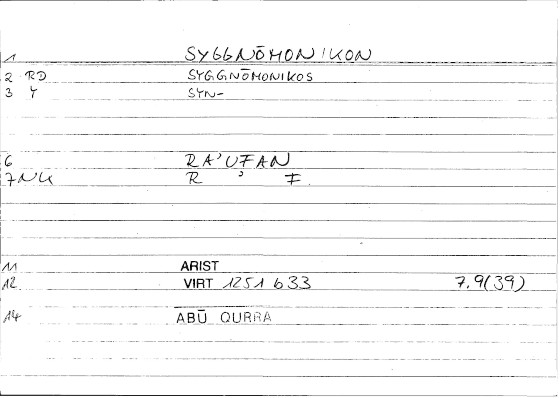 1 SYGGNŌMONIKON
2 RD SYGGNŌMONIKOS
3 Y SYN-
6 RA'UFAN
7 NU R ' F
11 ARIST
12 VIRT 1251 b 33 7.9(39)
14 ABŪ QURRA